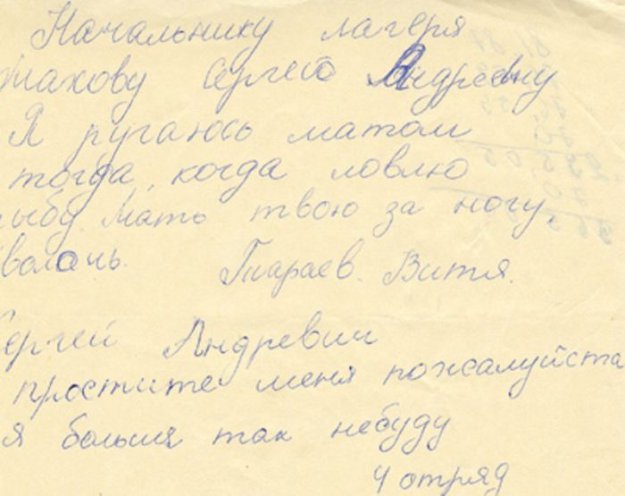 Начальнику лагеря
жахову Сергею Андреевну
Я ругаюсь матом
тогда, когда ловлю
рыбу. Мать твою за ногу,
сволочь. Тиараев. Витя.
Сергей Андревич
простите меня пожалуйста
я больше так небуду
4 отряд